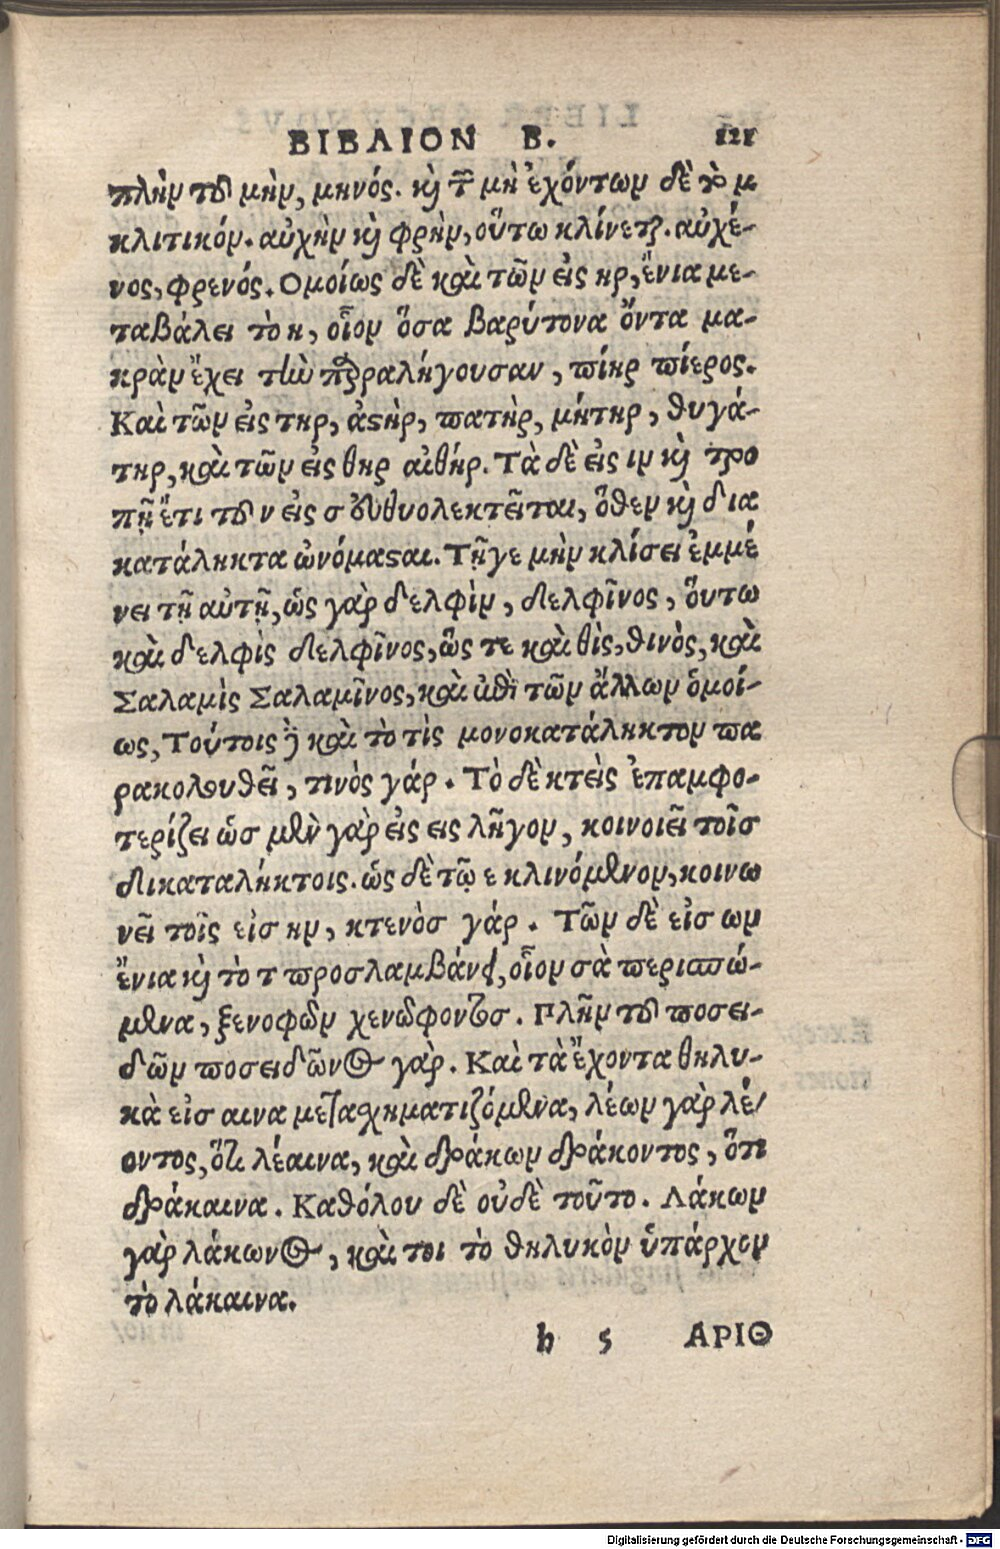 ΒΙΒΛΙΟΝ Β. 121
πλὴν τοῦ μὴν, μηνός. καὶ τῶν μὴ ἐχόντων δὲ τὸ μ
κλιτικόν. αὐχὴν καὶ φρὴν, οὕτω κλίνεται. αὐχέ-
νος, φρενός. Ομοίως δὲ καὶ τῶν εἰς ηρ, ἔνια με-
ταβάλει τὸ η, οἷον ὅσα βαρύτονα ὄντα μα-
κρὰν ἔχει τὴν παραλήγουσαν, πίηρ πίερος.
Καὶ τῶν εἰς τηρ, ἀστὴρ, πατὴρ, μήτηρ, θυγά-
τηρ, καὶ τῶν εἰς θηρ αἰθήρ. Τὰ δὲ εἰς ιν καὶ τρο
πῇ ἔτι τοῦ ν εἰς σ εὐθυολεκτεῖται, ὅθεν καὶ δια
κατάληκτα ὠνόμασαι. Τῇ γε μὴν κλίσει ἐμμέ
νει τῇ αὐτῇ, ὡς γὰρ δελφὶν, δελφῖνος, ὅυτω
καὶ δελφὶς δελφῖνος, ὥς τε καὶ θὶς, θινὸς, καὶ
Σαλαμὶς Σαλαμῖνος, καὶ ἐπὶ τῶν ἄλλων ὁμοί-
ως, Τούτοις δὲ καὶ τὸ τὶς μονοκατάληκτον πα
ρακολουθεῖ, τινὸς γάρ. Τὸ δὲ κτεὶς ἐπαμφο-
τερίζει ὡσ μὲν γὰρ εἰς εις λῆγον, κοινοιεῖ τοῖσ
δικαταλήκτοις. ὡς δὲ τῷ ε κλινόμενον, κοινω
νεῖ τοῖς εἰσ ην, κτενὸσ γάρ. Τῶν δὲ εἰσ ων
ἔνια καὶ τὸ τ προσλαμβάνει, οἷον σὰ περισπώ-
μενα, ξενοφῶν χενωφοντος. Πλῆν τοῦ ποσει-
δῶν ποσειδῶνος γὰρ. Καὶ τὰ ἔχοντα θηλυ-
κὰ εἰσ αινα μετασχηματιζόμενα, λέων γὰρ λέ-
οντος, ὅτι λέαινα, καὶ δράκων δράκοντος, ὅτι
δράκαινα. Καθόλου δὲ οὐδὲ τοῦτο. Λάκων
γὰρ λάκωνος, καὶ τοι τὸ θηλυκὸν ὑπάρχον
τὸ λάκαινα.
h 5 ΑΡΙΘ
Digitalisierung gefördert durch die Deutsche Forschungsgemeinschaft - DFG